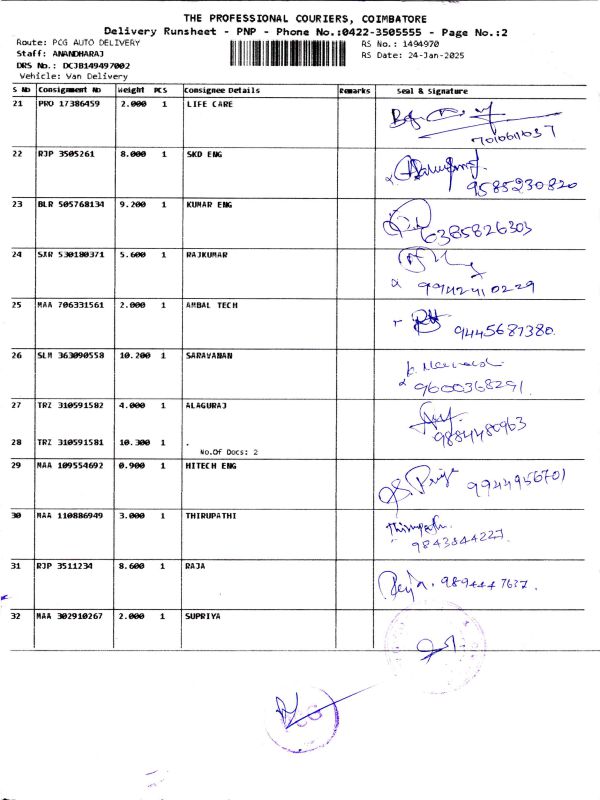 THE PROFESSIONAL COURIERS, COIMBATORE
Delivery Runsheet - PNP - Phone No.:0422-3505555 - Page No.:2
Route: PCG AUTO DELIVERY
RS No.: 1494970
Staff: ANANDHARAJ
RS Date: 24-Jan-2025
DRS No.: DCJB149497002
Vehicle: Van Delivery
S No Consignment No Weight PCS Consignee Details Remarks Seal & Signature
21 PRO 17386459 2.000 1 LIFE CARE
22 RJP 3505261 8.000 1 SKD ENG
9585230820
23 BLR 505768134 9.200 1 KUMAR ENG
6385826303
24 SXR 530180371 5.600 1 RAJKUMAR
9942410229
25 MAA 706331561 2.000 1 AMBAL TECH
9445687380.
26 SLM 363090558 10.200 1 SARAVANAN
9600368291
27 TRZ 310591582 4.000 1 ALAGURAJ
9884480963
28 TRZ 310591581 10.300 1 .
No.Of Docs: 2
29 MAA 109554692 0.900 1 HITECH ENG
S. Priya 9944956701
30 MAA 110886949 3.000 1 THIRUPATHI
Thirupathi.
9843344227.
31 RJP 3511234 8.600 1 RAJA
Raja. 9894447637.
32 MAA 302910267 2.000 1 SUPRIYA